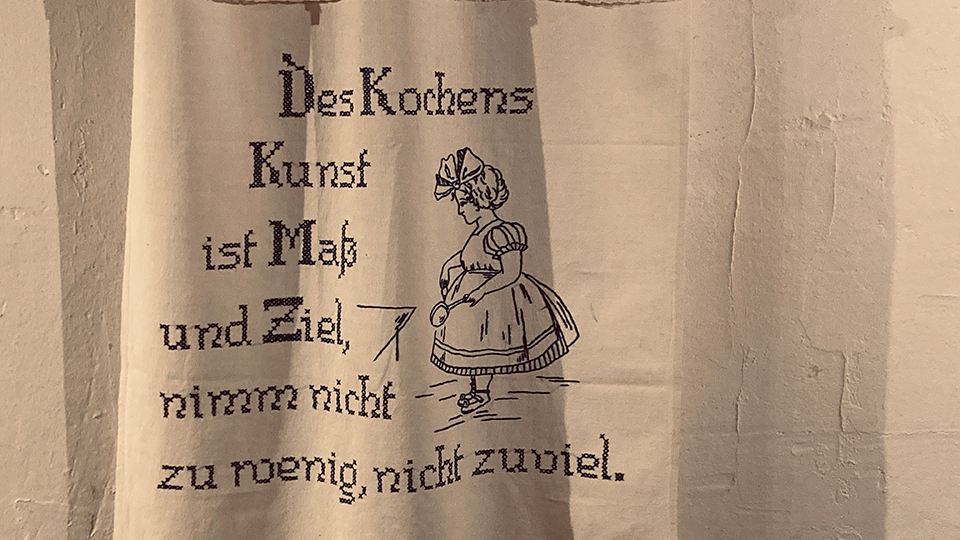 Des Kochens
Kunst
ist Maß
und Ziel,
nimm nicht
zu wenig, nicht zuviel.